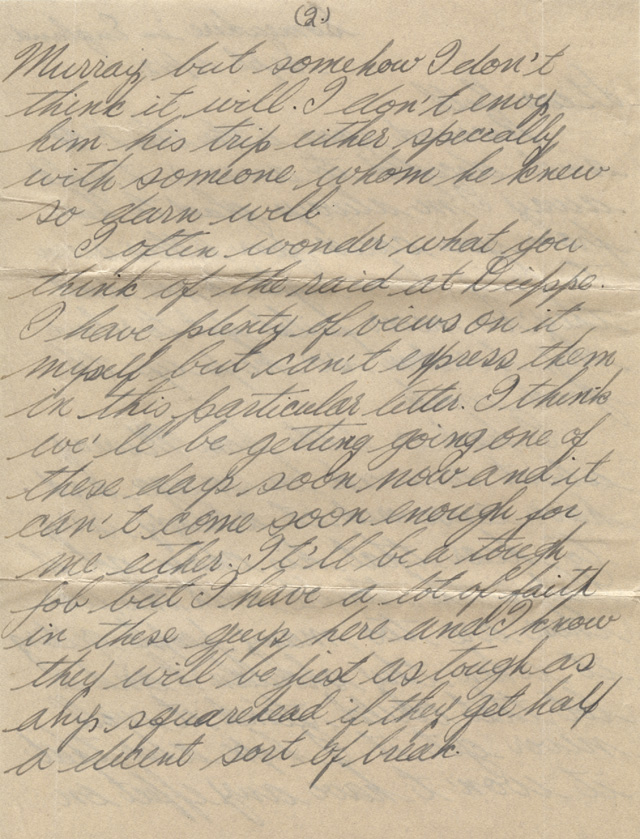 (2.)
Murray, but somehow I don't
think it will. I don't envy
him his trip either specially
with someone whom he knew
so darn well.
I often wonder what you
think of the raid at Dieppe.
I have plenty of views on it
myself but can't express them
in this particular letter. I think
we'll be getting going one of
these days soon now and it
can't come soon enough for
me either. It'll be a tough
job but I have a lot of faith
in these guys here and I know
they will be just as tough as
any squarehead if they get half
a decent sort of break.